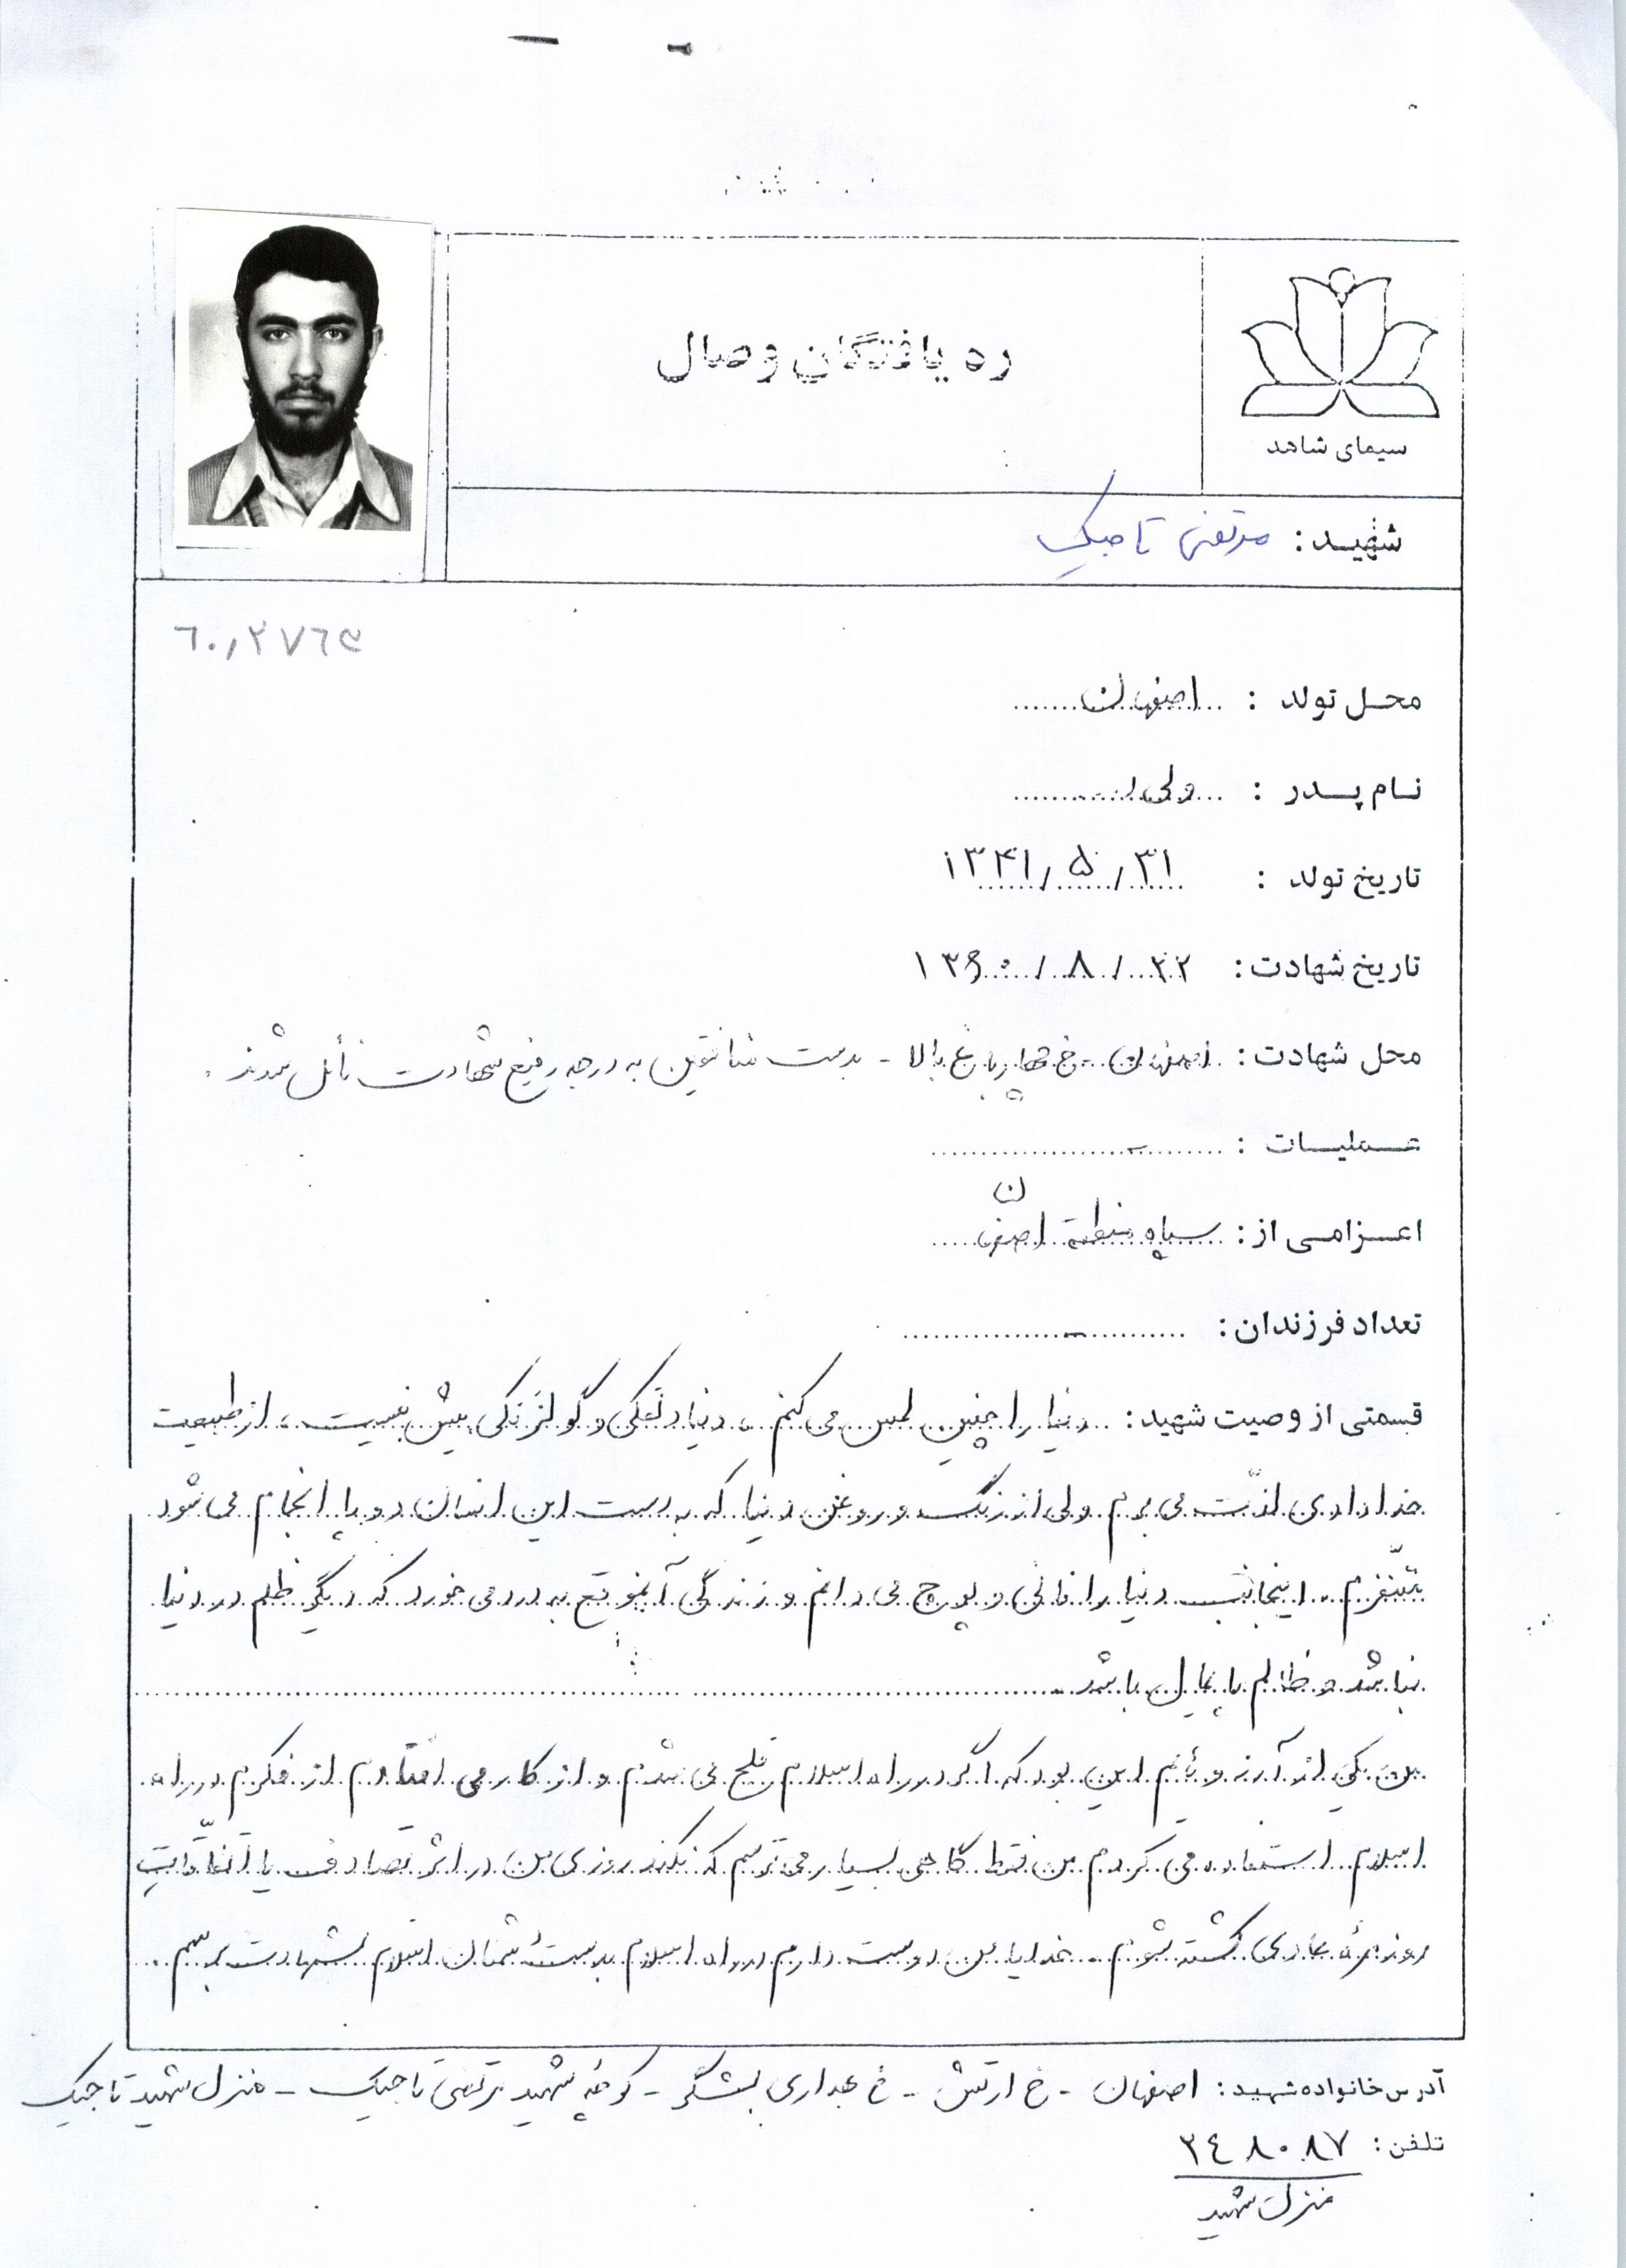 ره یافتگان وصال
سیمای شاهد
شهید: مرتضی تاجیک
٦٠,٢٧٦٤
محل تولد : اصفهان
نام پدر : ولی
تاریخ تولد : ۱۳۴۱/۵/۳۱
تاریخ شهادت: ۱۳۶۰/۸/۲۲
محل شهادت: اصفهان - خ چهارباغ بالا - بدست منافقین به درجه رفیع شهادت نائل شدند.
عملیات : -
اعزامی از: سپاه منطقه اصفهان
تعداد فرزندان: -
قسمتی از وصیت شهید: دنیا را چنین لمس می کنم، دنیا دلقکی و گولزنکی بیش نیست، از طبیعت
خدادادی لذّت می برم ولی از رنگ و روغن دنیا که بدست این انسان دو پا انجام می شود
متنّفرم. اینجانب دنیا را فانی و پوچ می دانم و زندگی آنموقع به درد می خورد که دیگر ظلم در دنیا
نباشد و ظالم پایمال باشد.
من یکی از آرزوئیم این بود که اگر در راه اسلام فلج می شدم و از کار می افتادم از فکرم در راه
اسلام استفاده می کردم من فقط گاهی بسیار می ترسم که نکند روزی من در اثر تصادف یا اتفاقات
روزمرهٔ عادی کشته شوم. خدایا من دوست دارم در راه اسلام بدست دشمنان اسلام بشهادت برسم.
آدرس خانواده شهید: اصفهان - خ ارتش - خ بهداری لشگر - کوچه شهید مرتضی تاجیک - منزل شهید تاجیک
تلفن: ٢٤٨٠٨٧
منزل شهید